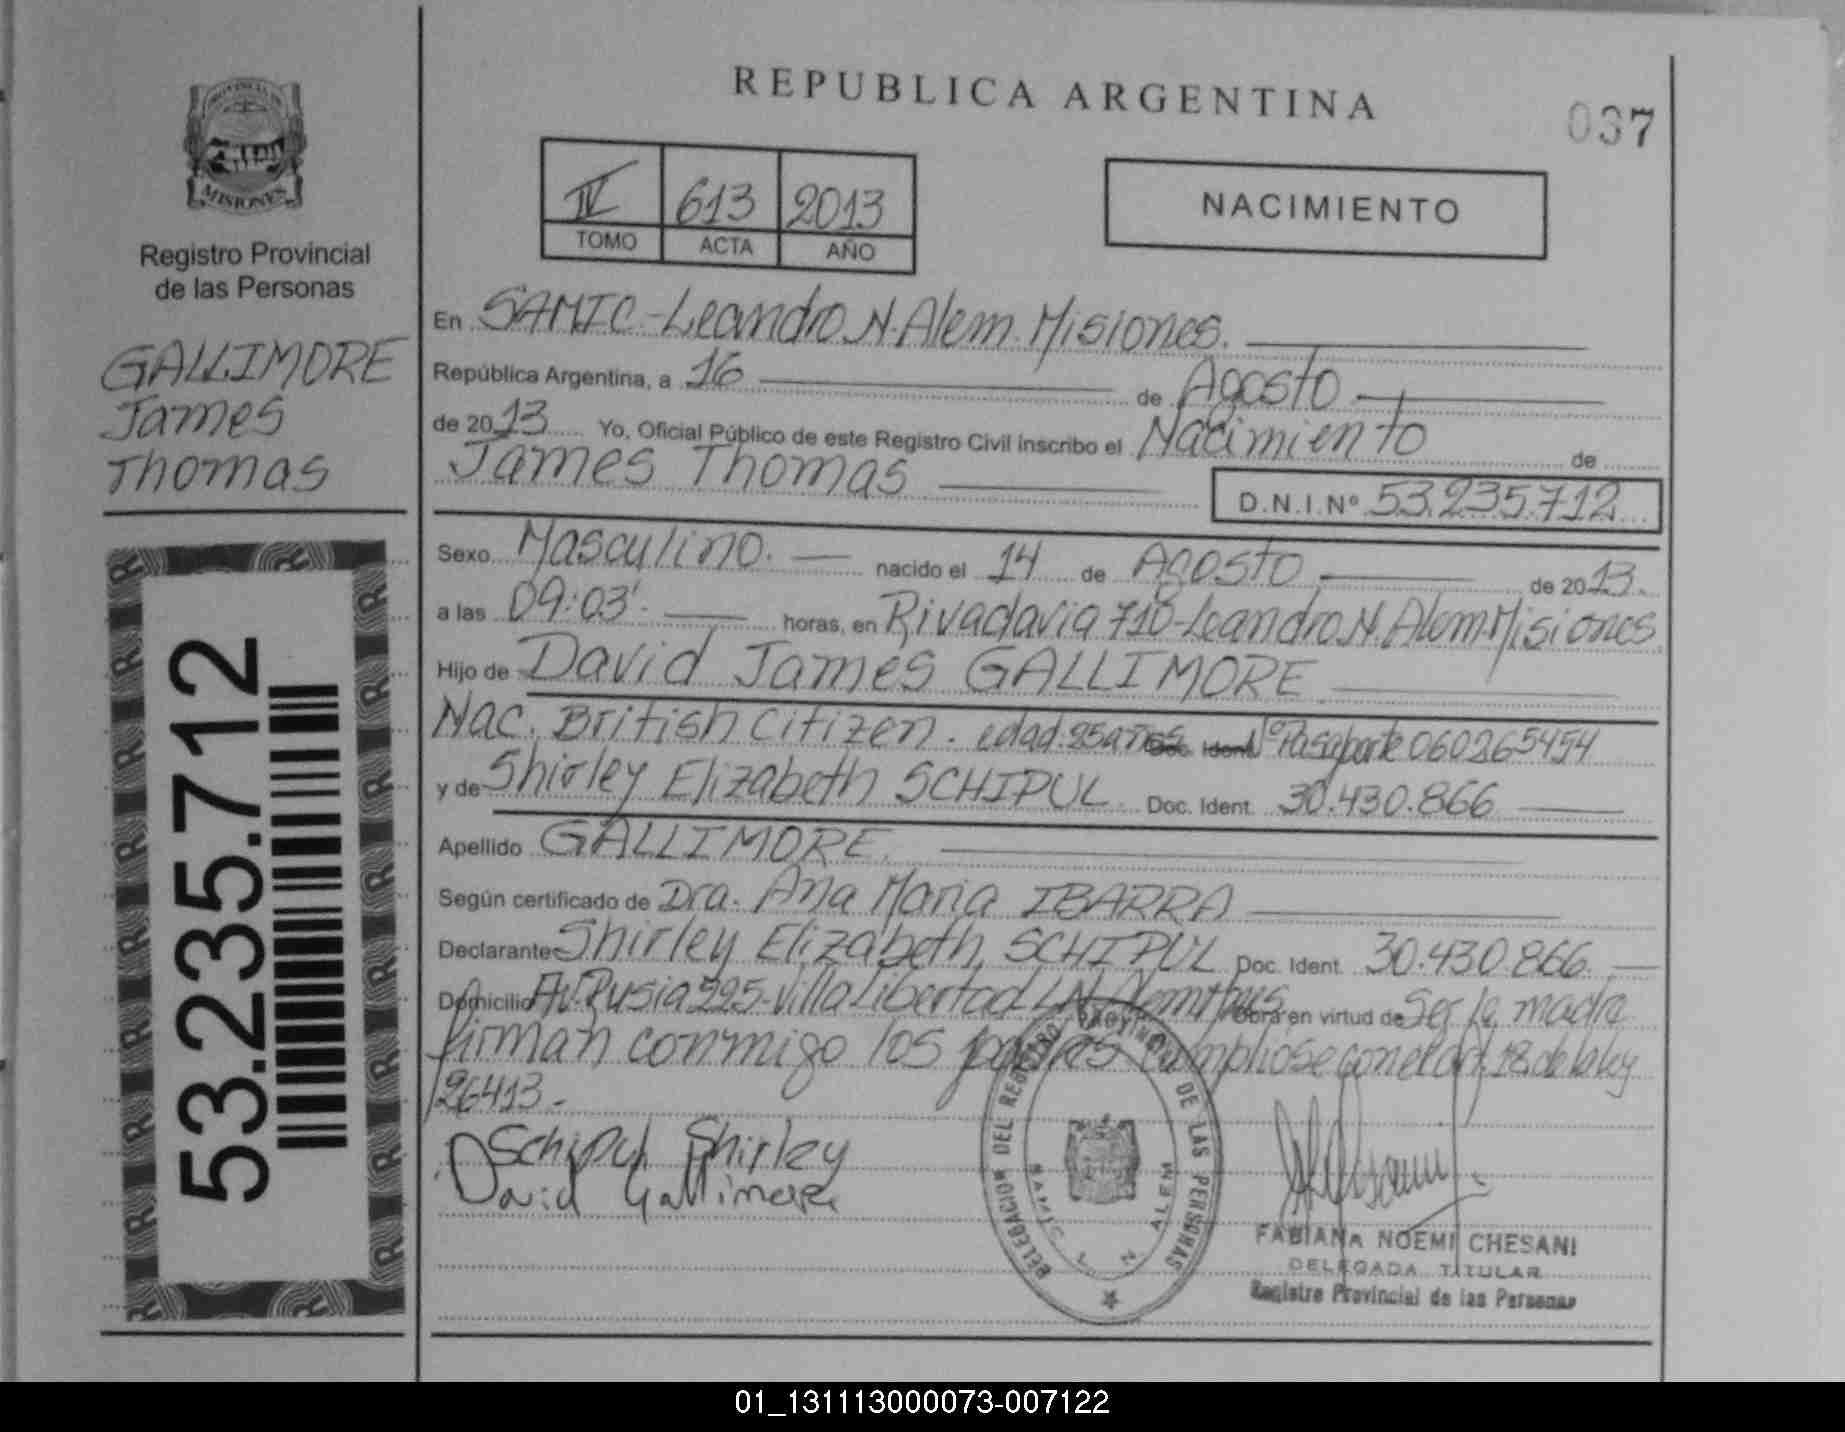 REPUBLICA ARGENTINA
037
PROVINCIA DE
MISIONES
Registro Provincial
de las Personas
GALLIMORE
James
Thomas
53.235.712
IV 613 2013
TOMO ACTA AÑO
NACIMIENTO
En SAMIC-Leandro N. Alem. Misiones.
República Argentina, a 16 de Agosto
de 2013 Yo, Oficial Público de este Registro Civil inscribo el Nacimiento de
James Thomas D.N.I.Nº 53.235.712
Sexo Masculino. nacido el 14 de Agosto de 2013.
a las 09:03'. horas, en Rivadavia 710-Leandro N. Alem. Misiones
Hijo de David James GALLIMORE
Nac. British Citizen. edad. 25 años Doc. Ident. Nº Pasaporte 060265454
y de Shirley Elizabeth SCHIPUL Doc. Ident. 30.430.866
Apellido GALLIMORE.
Según certificado de Dra. Ana Maria IBARRA
Declarante Shirley Elizabeth SCHIPUL Doc. Ident. 30.430.866.
Domicilio Av. Rusia 595-Villa Libertad L.N. Alem Obra en virtud de Ser la madre
firman conmigo los padres cumpliose con el art. 18. de la ley
26413.-
Schipul Shirley
David Gallimore
DELEGACION DEL REGISTRO PROVINCIAL DE LAS PERSONAS
SAMIC L. N. ALEM
FABIANA NOEMI CHESANI
DELEGADA TITULAR
Registro Provincial de las Personas
01_131113000073-007122